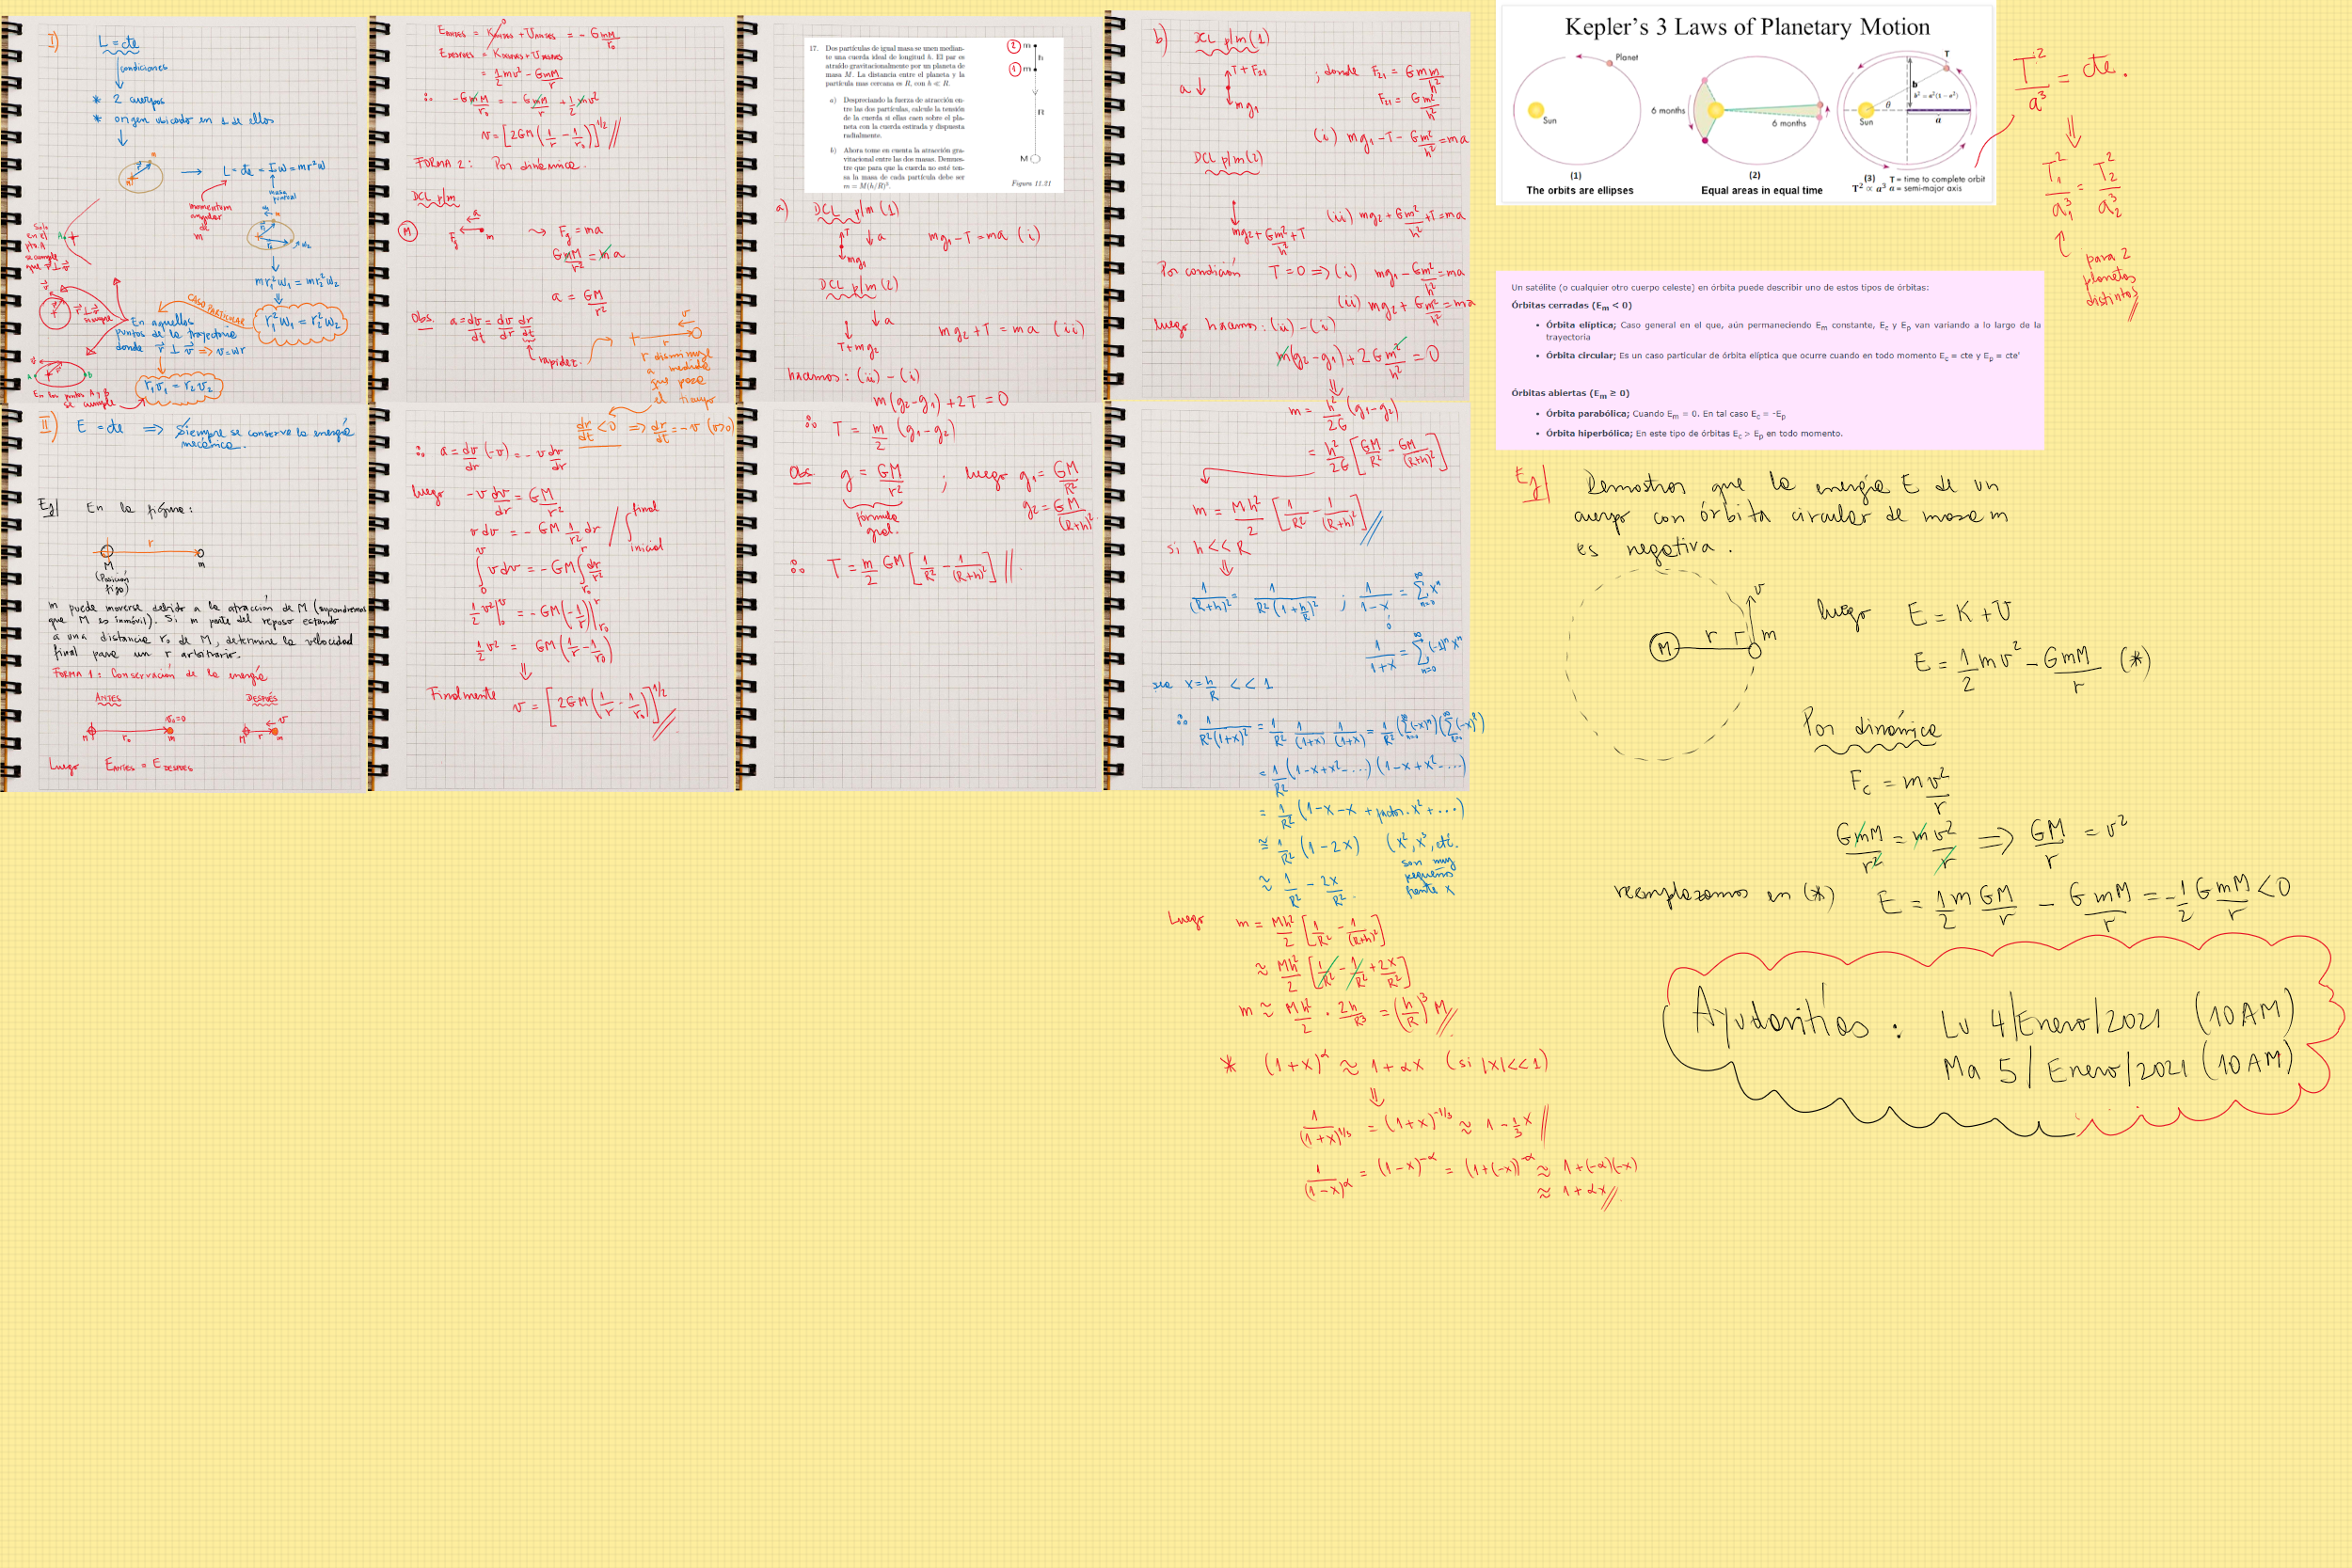 I)
L = cte
condiciones
* 2 cuerpos
* origen ubicado en 1 de ellos
→ L = cte = Iω = mr²ω
masa puntual
momentum angular de m
Solo en el pto. A se cumple que r⃗ ⊥ v⃗
mr₁²ω₁ = mr₂²ω₂
r₁²ω₁ = r₂²ω₂
CASO PARTICULAR
r⃗ ⊥ v⃗ siempre
En aquellos puntos de la trayectoria donde r⃗ ⊥ v⃗ => v = ωr
r₁v₁ = r₂v₂
En los puntos A y B se cumple
II) E = cte => Siempre se conserva la energía mecánica.
Ej| En la figura:
r
M
m
(Posición fijo)
m puede moverse debido a la atracción de M (supondremos
que M es inmóvil). Si m parte del reposo estando
a una distancia r₀ de M, determine la velocidad
final para un r arbitrario.
FORMA 1: Conservación de la energía
ANTES
DESPUÉS
v₀=0
v
M r₀ m
M r m
Luego E_ANTES = E_DESPUES
E_ANTES = K_ANTES + U_ANTES = - GmM/r₀
E_DESPUES = K_DESPUES + U_DESPUES
= 1/2 mv² - GmM/r
∴ -GmM/r₀ = -GmM/r + 1/2 mv²
v = [2GM(1/r - 1/r₀)]^1/2 //
FORMA 2: Por dinámica.
DCL p/m
M Fg a m
~> Fg = ma
GmM/r² = ma
a = GM/r²
Obs. a = dv/dt = dv/dr dr/dt
rapidez.
v
r
r disminuye a medida que pasa el tiempo
dr/dt < 0 => dr/dt = -v (v>0)
∴ a = dv/dr (-v) = -v dv/dr
luego -v dv/dr = GM/r²
v dv = -GM 1/r² dr / ∫ final inicial
∫₀^v v dv = -GM ∫_r₀^r dr/r²
1/2 v² |₀^v = -GM(-1/r)|_r₀^r
1/2 v² = GM(1/r - 1/r₀)
Finalmente v = [2GM(1/r - 1/r₀)]^1/2 //
17. Dos partículas de igual masa se unen median-
te una cuerda ideal de longitud h. El par es
atraído gravitacionalmente por un planeta de
masa M. La distancia entre el planeta y la
partícula mas cercana es R, con h ≪ R.
a) Despreciando la fuerza de atracción en-
tre las dos partículas, calcule la tensión
de la cuerda si ellas caen sobre el pla-
neta con la cuerda estirada y dispuesta
radialmente.
b) Ahora tome en cuenta la atracción gra-
vitacional entre las dos masas. Demues-
tre que para que la cuerda no esté ten-
sa la masa de cada partícula debe ser
m = M(h/R)³.
2 m
h
1 m
R
M
Figura 11.21
a) DCL p/m(1)
T a mg₁
mg₁ - T = ma (i)
DCL p/m(2)
a
T + mg₂
mg₂ + T = ma (ii)
hacemos: (ii) - (i)
m(g₂ - g₁) + 2T = 0
∴ T = m/2 (g₁ - g₂)
Obs g = GM/r² ; luego g₁ = GM/R²
fórmula gral.
g₂ = GM/(R+h)²
∴ T = m/2 GM [1/R² - 1/(R+h)²] //
b) DCL p/m(1)
a T + F₂₁ mg₁
; donde F₂₁ = Gmm/h²
F₂₁ = Gm²/h²
(i) mg₁ - T - Gm²/h² = ma
DCL p/m(2)
mg₂ + Gm²/h² + T
(ii) mg₂ + Gm²/h² + T = ma
Por condición T = 0 => (i) mg₁ - Gm²/h² = ma
(ii) mg₂ + Gm²/h² = ma
luego hacemos: (ii) - (i)
m(g₂ - g₁) + 2Gm²/h² = 0
m = h²/2G (g₁ - g₂)
= h²/2G [GM/R² - GM/(R+h)²]
m = Mh²/2 [1/R² - 1/(R+h)²] //
si h << R
1/(R+h)² = 1/R²(1+h/R)² ; 1/(1-x) = Σ_{n=0}^∞ xⁿ
1/(1+x) = Σ_{n=0}^∞ (-1)ⁿ xⁿ
sea x = h/R << 1
∴ 1/R²(1+x)² = 1/R² 1/(1+x) 1/(1+x) = 1/R² (Σ(-x)ⁿ)(Σ(-x)ⁿ)
= 1/R² (1-x+x²-...)(1-x+x²-...)
= 1/R² (1-x-x + factor·x² + ...)
≅ 1/R² (1-2x) (x², x³, etc. son muy pequeños frente x
≈ 1/R² - 2x/R².
Luego m = Mh²/2 [1/R² - 1/(R+h)²]
≈ Mh²/2 [1/R² - 1/R² + 2x/R²]
m ≈ Mh²/2 · 2h/R³ = (h/R)³ M //
* (1+x)^α ≈ 1 + αx (si |x|<<1)
1/(1+x)^1/3 = (1+x)^-1/3 ≈ 1 - 1/3 x //
1/(1-x)^α = (1-x)^-α = (1+(-x))^-α ≈ 1+(-α)(-x)
≈ 1+αx //
Kepler's 3 Laws of Planetary Motion
Planet
Sun
(1)
The orbits are ellipses
6 months
6 months
(2)
Equal areas in equal time
T
b
b² = a²(1 - e²)
θ
Sun
a
(3) T = time to complete orbit
T² ∝ a³ a = semi-major axis
T²/a³ = cte.
T₁²/a₁³ = T₂²/a₂³
para 2 planetas distintos //
Un satélite (o cualquier otro cuerpo celeste) en órbita puede describir uno de estos tipos de órbitas:
Órbitas cerradas (Em < 0)
• Órbita elíptica; Caso general en el que, aún permaneciendo Em constante, Ec y Ep van variando a lo largo de la
trayectoria
• Órbita circular; Es un caso particular de órbita elíptica que ocurre cuando en todo momento Ec = cte y Ep = cte'
Órbitas abiertas (Em ≥ 0)
• Órbita parabólica; Cuando Em = 0. En tal caso Ec = -Ep
• Órbita hiperbólica; En este tipo de órbitas Ec > Ep en todo momento.
Ej| Demostrar que la energía E de un
cuerpo con órbita circular de masa m
es negativa.
M r m v
luego E = K + U
E = 1/2 mv² - GmM/r (*)
Por dinámica
Fc = m v²/r
GmM/r² = m v²/r => GM/r = v²
reemplazamos en (*) E = 1/2 m GM/r - GmM/r = -1/2 GmM/r < 0
Ayudantías : Lu 4/Enero/2021 (10AM)
Ma 5/Enero/2021 (10AM)